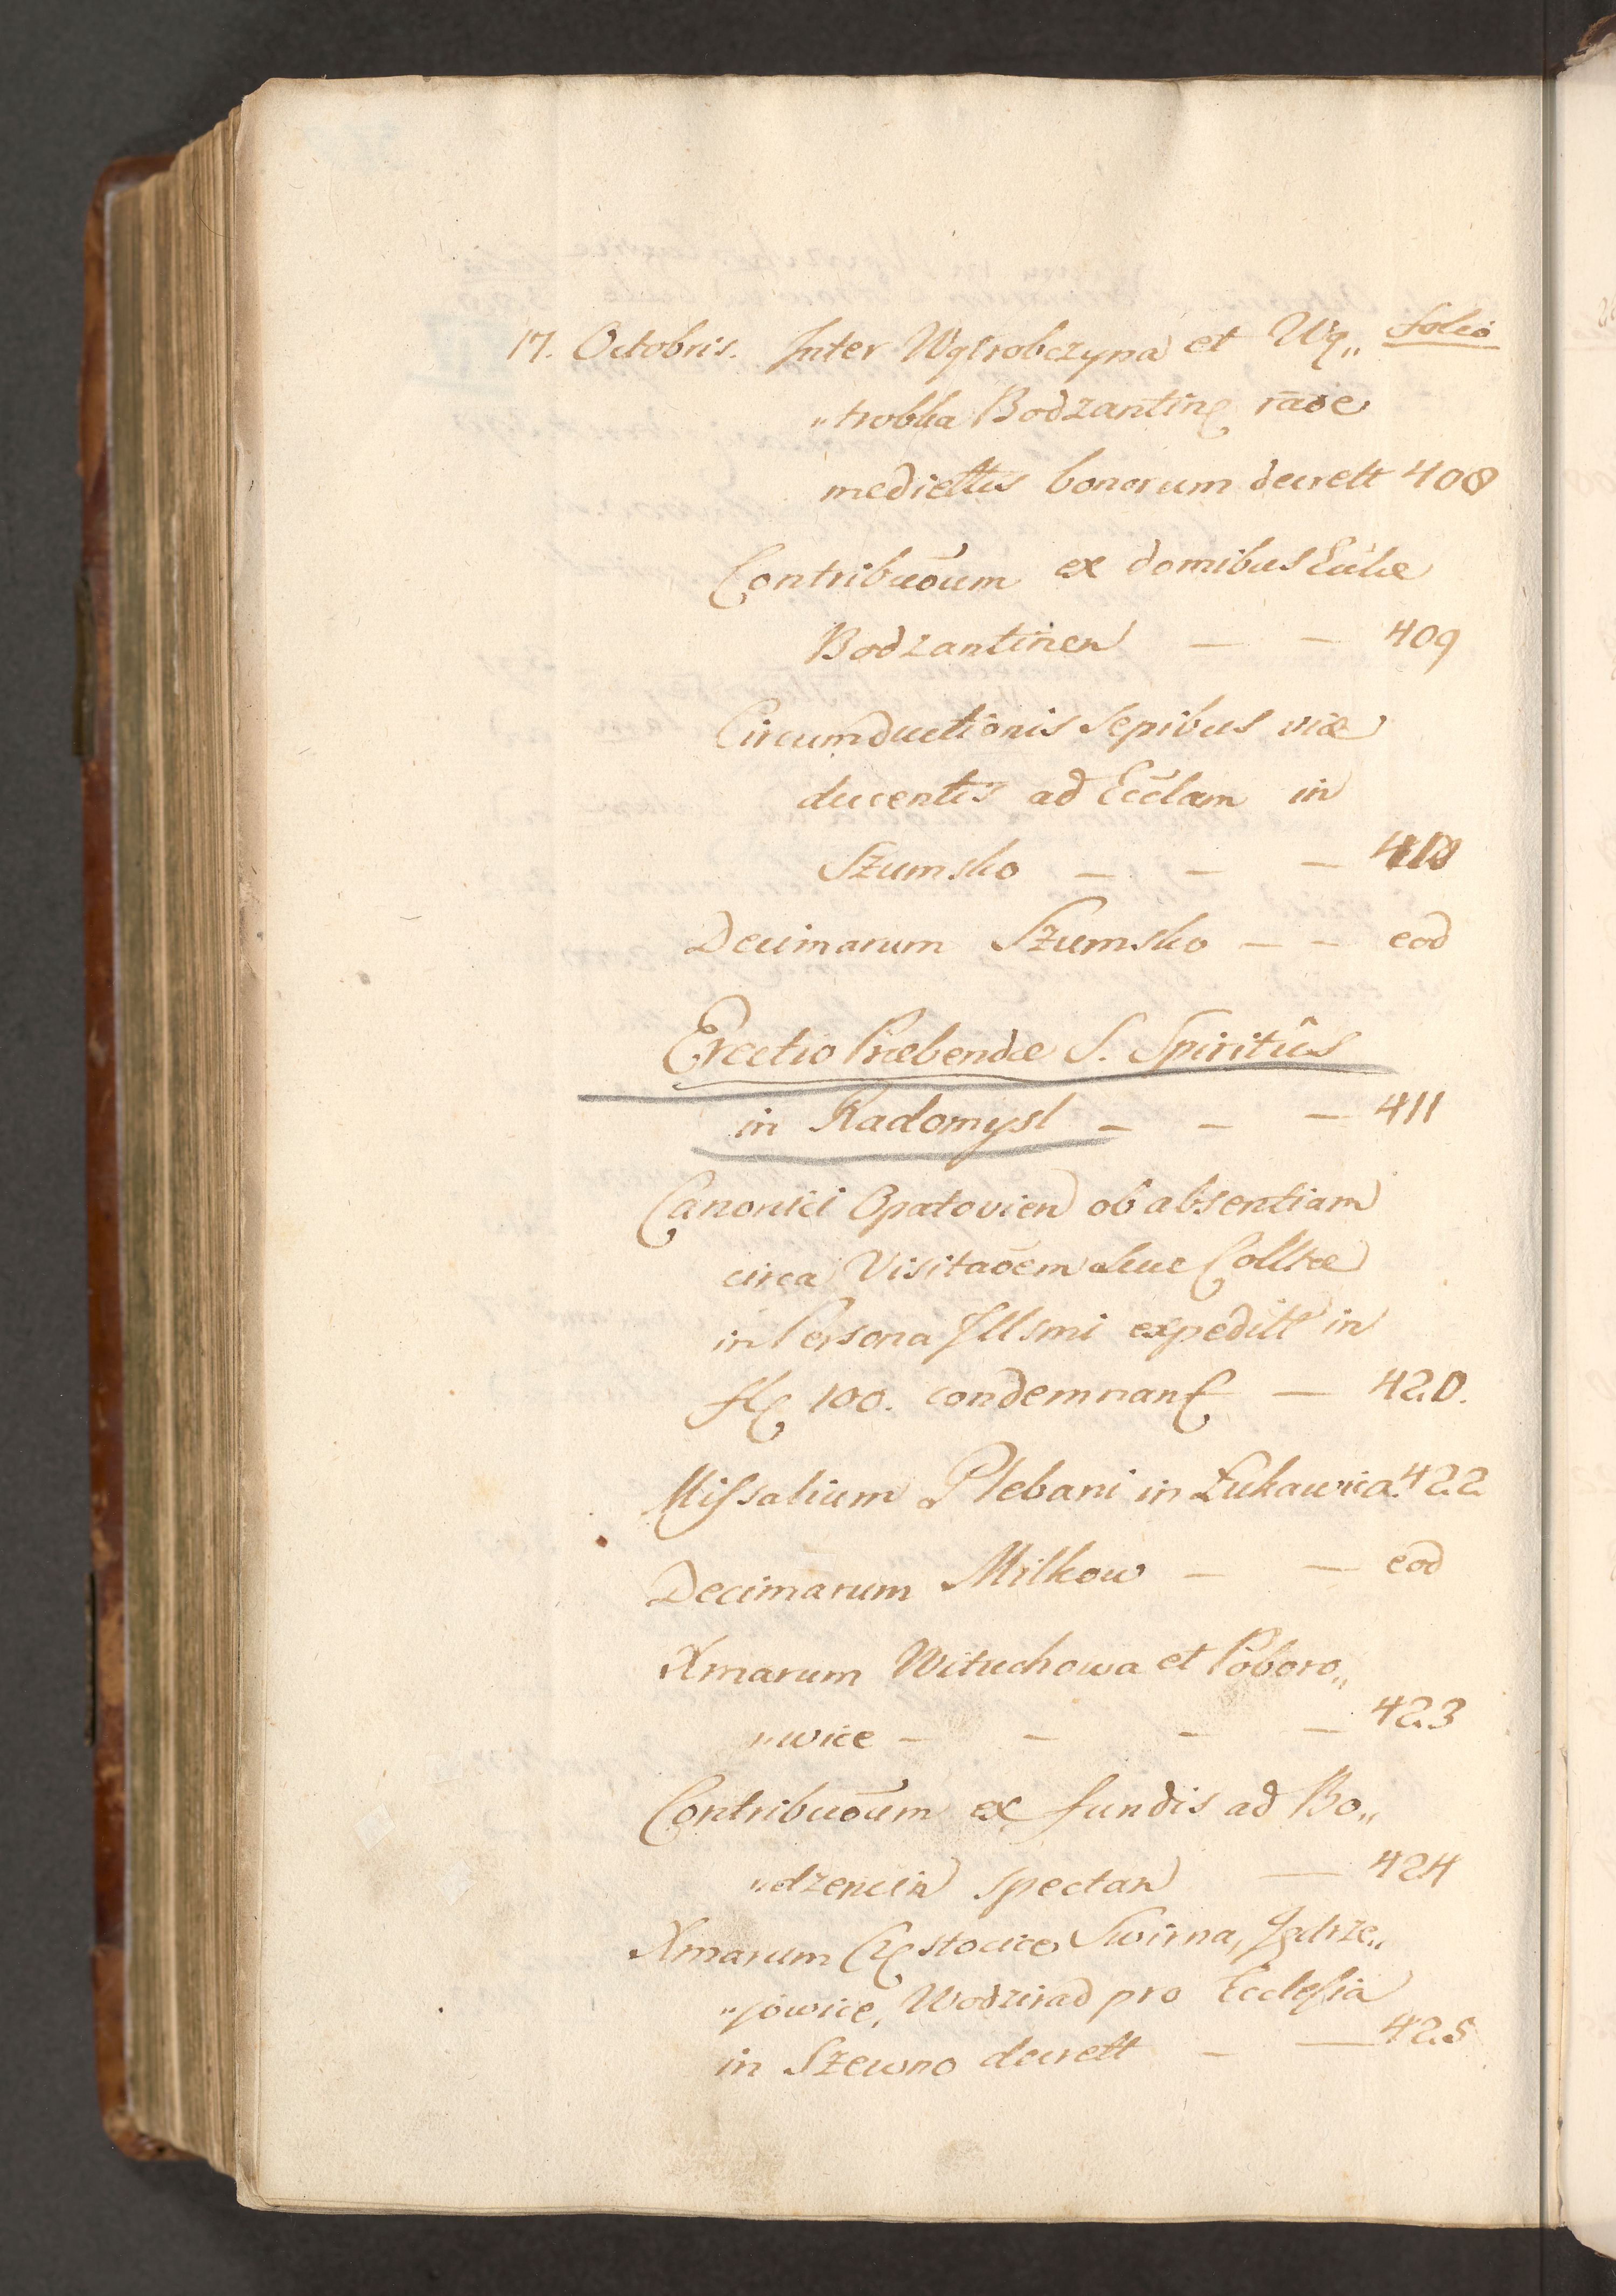 folio
17. Octobris. Inter Wątrobczyna et Wą„
„trobka Bodzantinę raōe
mediettis bonorum decrett 408
Contribuōum ex domibus Eccliæ
Bodzantinen — — 409
Circumductionis Sepibus viæ
ducentis ad Ecclam in
Szumsko — — — 410
Decimarum Szumsko — — eod
Erectio Præbendæ S. Spiritûs
in Radomysl — — — 411
Canonici Opatovien ob absentiam
circa Visitaōem suæ Colltæ
in Persona Illsmi expeditt in
fl 100. condemnan — 420.
Missalium Plebani in Łukawica 422
Decimarum Milkow — — eod
Xmarum Wituchowa et Poboro„
„wice — — — — 423
Contribuōum ex fundis ad Bo„
„dzencin spectan — 424
Xmarum Częstocice Swirna, Jędrze„
„jowice, Wodzirad pro Ecclesia
in Szewno decrett — — 425